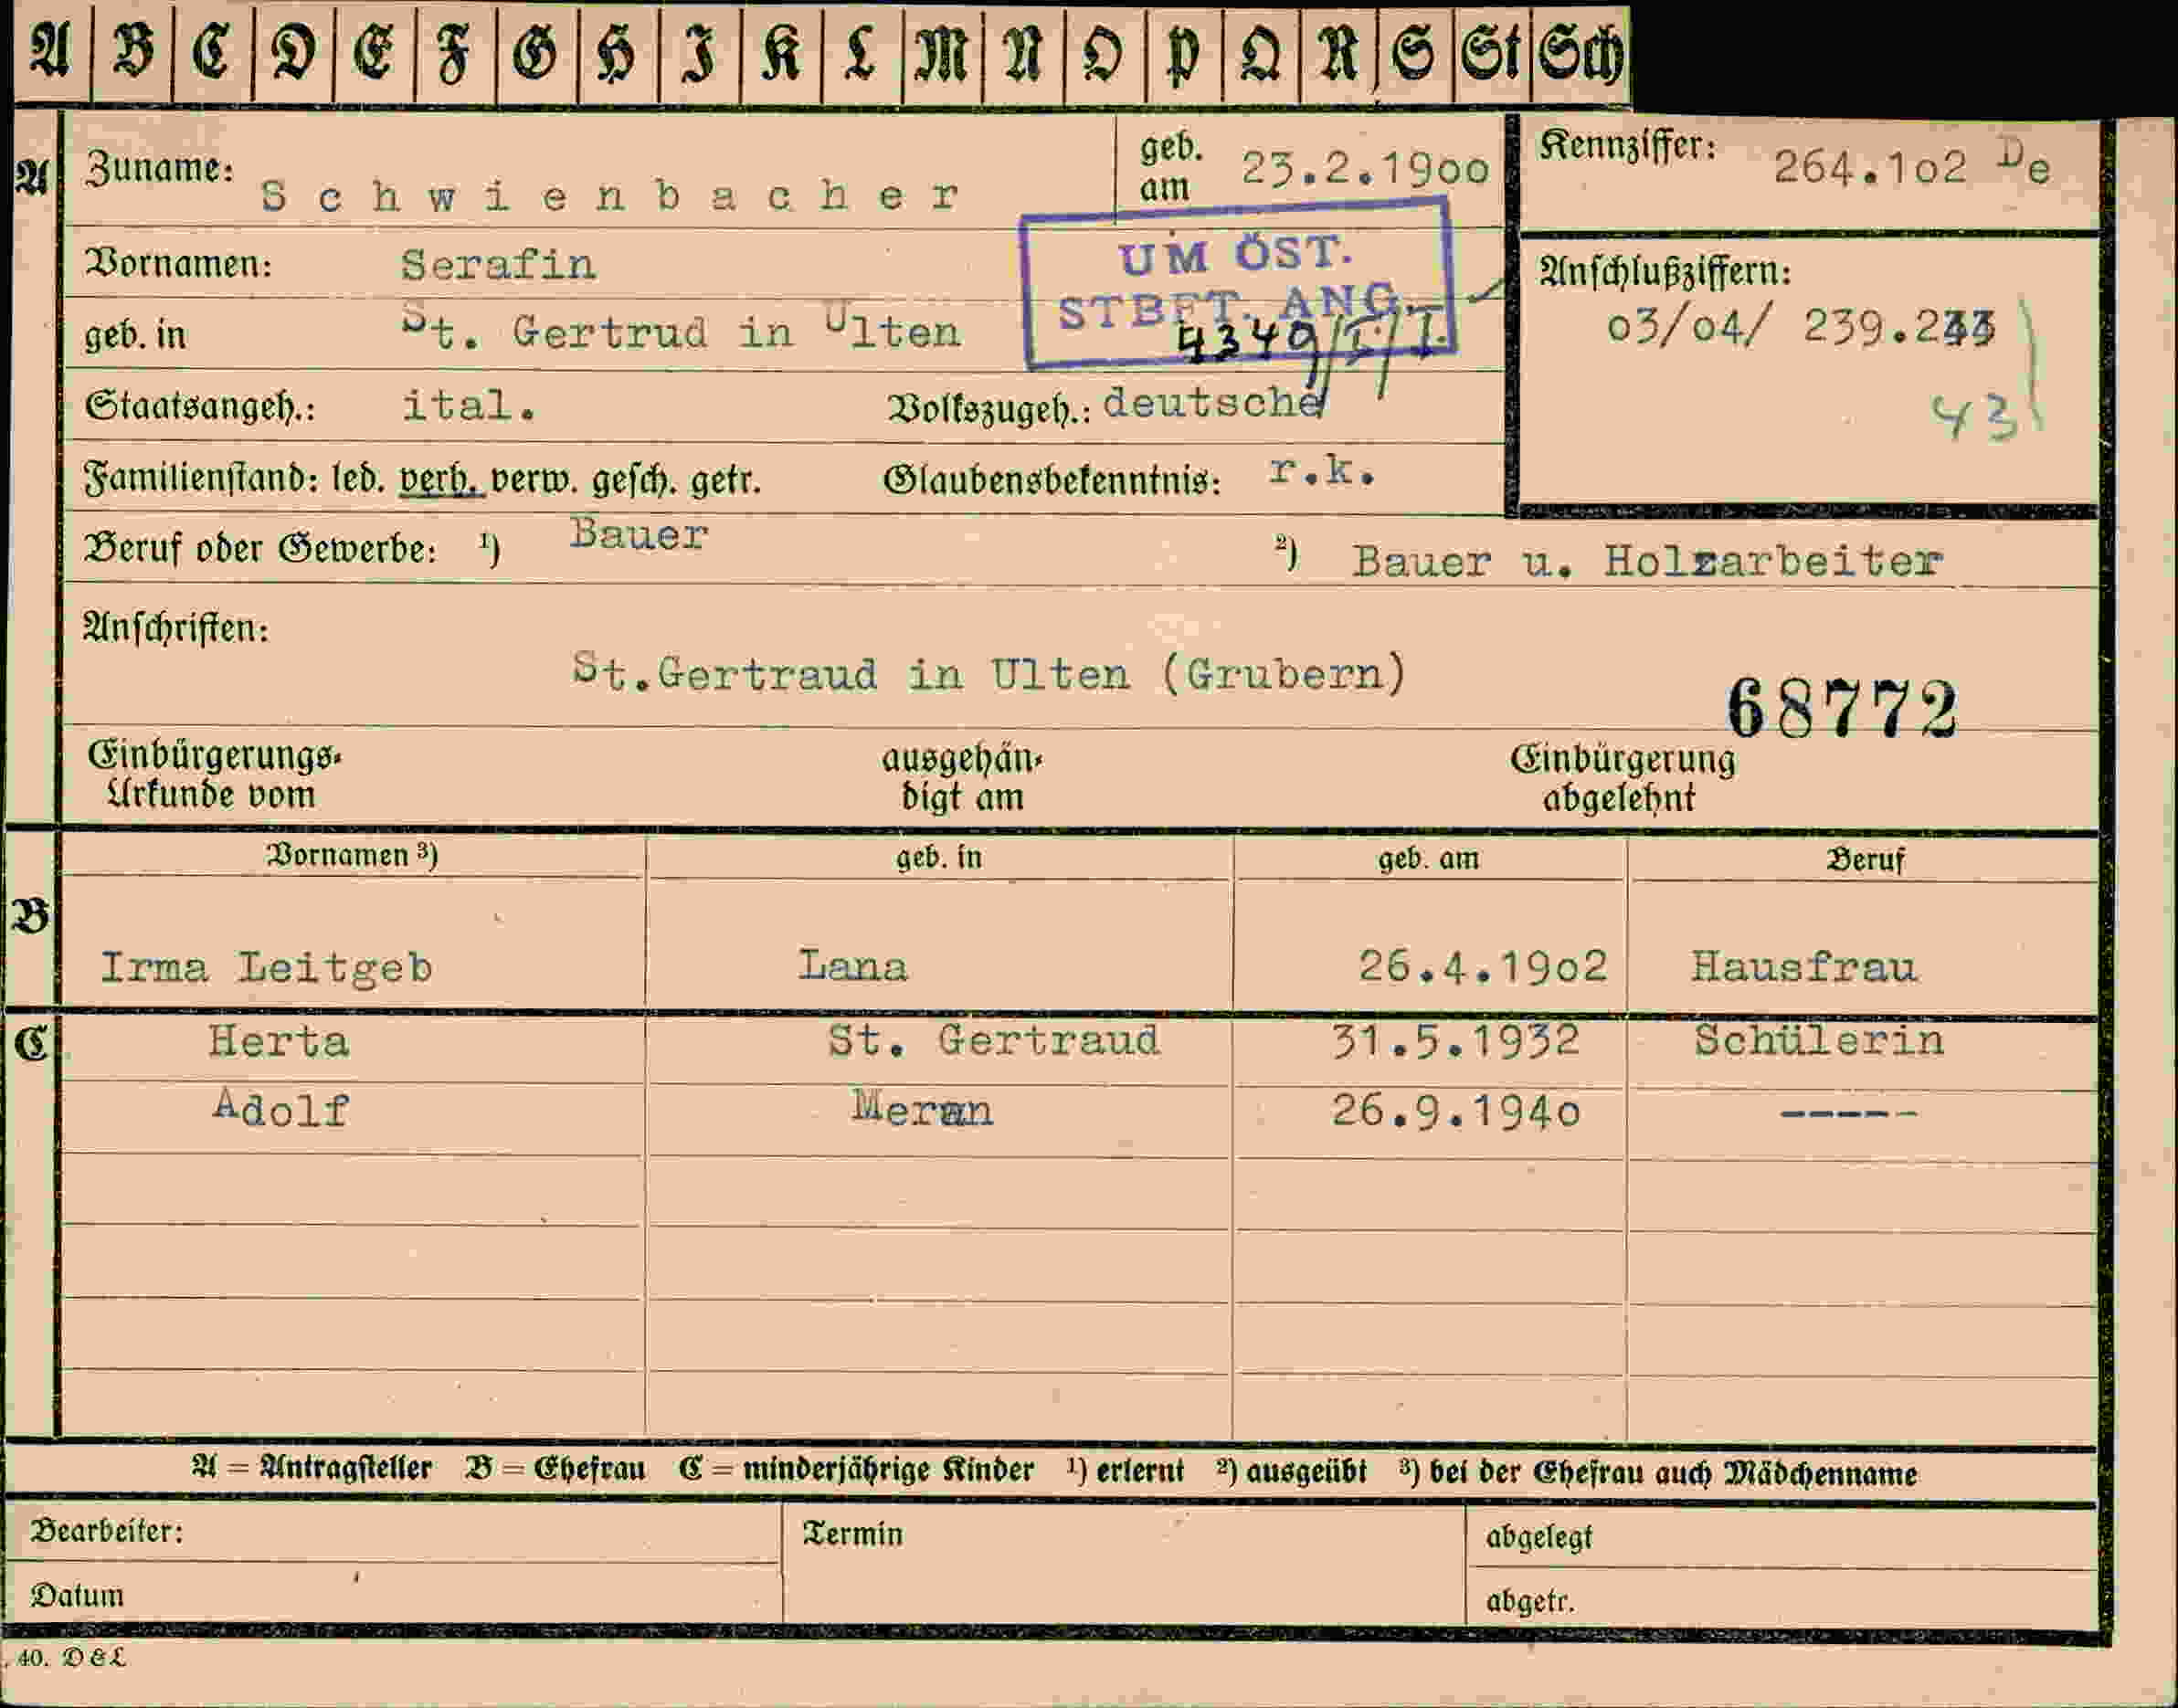 A B C D E F G H I K L M N O P Q R S St Sch
A Zuname: Schwienbacher geb. am 23.2.1900 Kennziffer: 264.1o2 De
Vornamen: Serafin
UM ÖST.
STBFT. ANG.
Anschlußziffern:
geb. in St. Gertrud in Ulten
03/04/ 239.2
43
Staatsangeh.: ital. Volkszugeh.: deutsche
Familienstand: led. verh. verw. gesch. getr. Glaubensbekenntnis: r.k.
Beruf oder Gewerbe: ¹) Bauer ²) Bauer u. Holzarbeiter
Anschriften:
St.Gertraud in Ulten (Grubern)
68772
Einbürgerungs-Urkunde vom ausgehändigt am Einbürgerung abgelehnt
Vornamen ³) geb. in geb. am Beruf
B Irma Leitgeb Lana 26.4.19o2 Hausfrau
C Herta St. Gertraud 31.5.1932 Schülerin
Adolf Meran 26.9.194o -----
A = Antragsteller B = Ehefrau C = minderjährige Kinder ¹) erlernt ²) ausgeübt ³) bei der Ehefrau auch Mädchenname
Bearbeiter: Termin abgelegt
Datum abgetr.
. 40. D & L